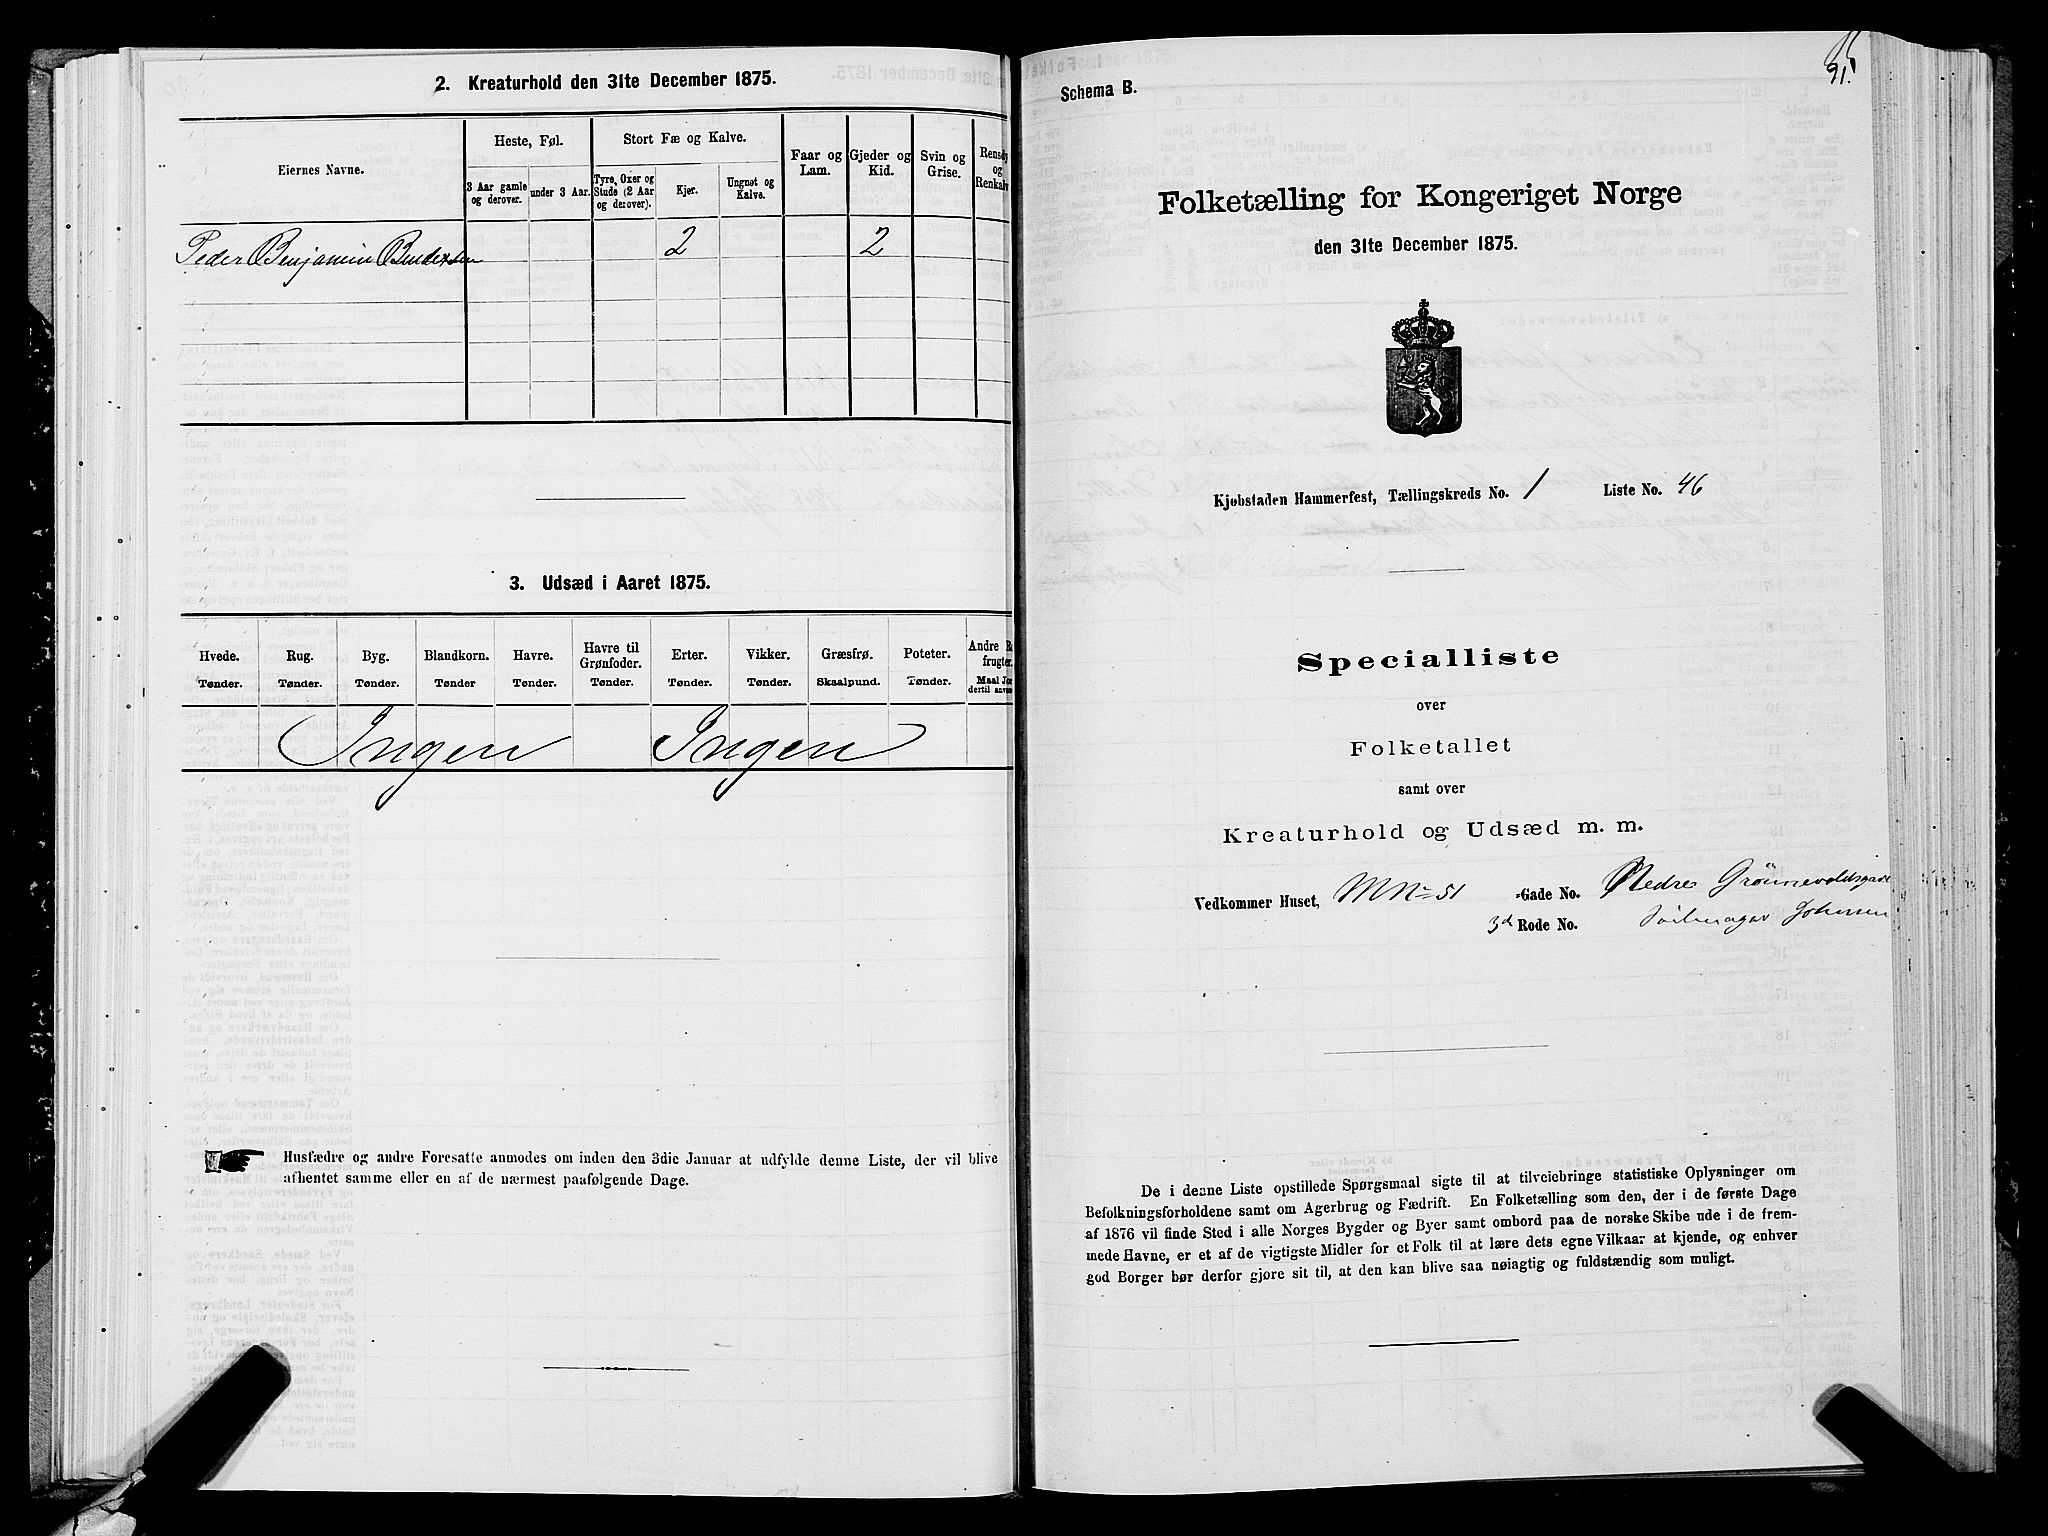 2. Kreaturhold den 31te December 1875.
Eiernes Navne.
Heste, Føl.
3 Aar gamle og derover.
under 3 Aar.
Stort Fæ og Kalve.
Tyre, Oxer og Stude (2 Aar og derover).
Kjør.
Ungnøt og Kalve.
Faar og Lam.
Gjeder og Kid.
Svin og Grise.
og
Peder Benjamin 2 2
3. Udsæd i Aaret 1875.
Hvede. Rug. Byg. Blandkorn. Havre. Havre til Grønfoder. Erter. Vikker. Græsfrø. Poteter. Andre
Tønder. Tønder. Tønder. Tønder Tønder. Tønder. Tønder. Tønder. Skaalpund. Tønder. Maal
Ingen Ingen
Husfædre og andre Foresatte anmodes om inden den 3die Januar at udfylde denne Liste, der vil blive
afhentet samme eller en af de nærmest paafølgende Dage.
91.
Schema B.
Folketælling for Kongeriget Norge
den 31te December 1875.
Kjøbstaden Hammerfest, Tællingskreds No. 1 Liste No. 46
Specialliste
over
Folketallet
samt over
Kreaturhold og Udsæd m. m.
Vedkommer Huset, MNo 51 -Gade No. Nedre Grønnevoldsgade
3d Rode No.
De i denne Liste opstillede Spørgsmaal sigte til at tilveiebringe statistiske Oplysninger om
Befolkningsforholdene samt om Agerbrug og Fædrift. En Folketælling som den, der i de første Dage
af 1876 vil finde Sted i alle Norges Bygder og Byer samt ombord paa de norske Skibe ude i de frem-
mede Havne, er et af de vigtigste Midler for et Folk til at lære dets egne Vilkaar at kjende, og enhver
god Borger bør derfor gjøre sit til, at den kan blive saa nøiagtig og fuldstændig som muligt.